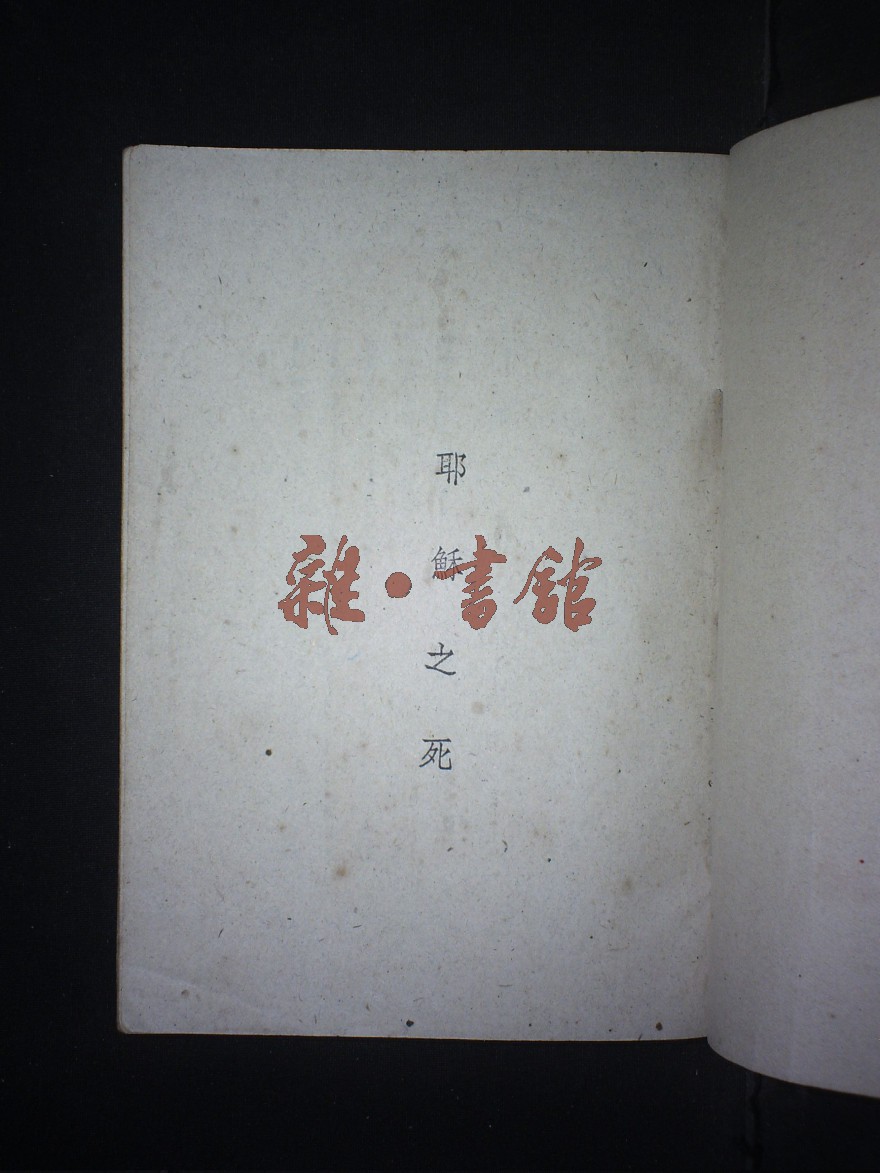 耶穌之死
雜·書館